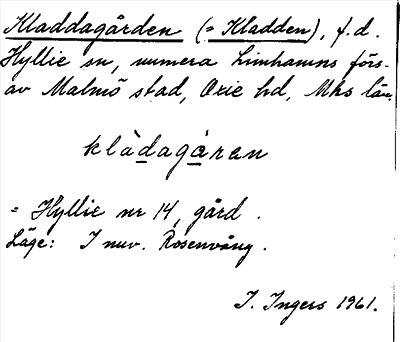 Kladdagården (= Kladden), f.d.
Hyllie sn, numera Limhamns förs.
av Malmö stad, Oxie hd, Mhs län.
klàdagáran
= Hyllie nr 14, gård.
Läge: I nuv. Rosenvång.
I. Ingers 1961.